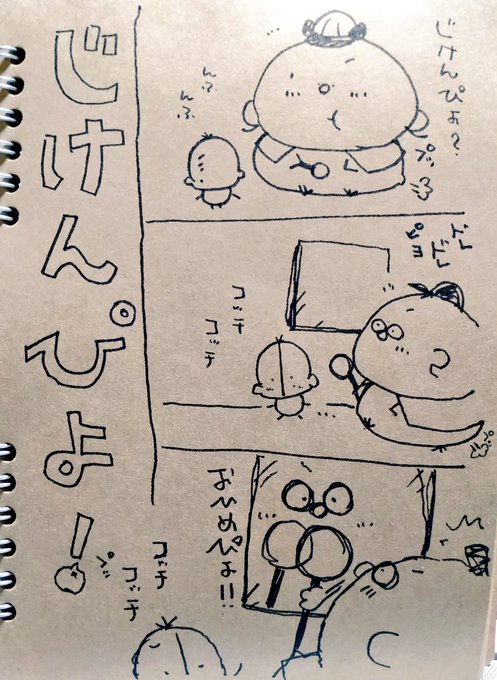 じけんぴよ！
じけんぴよ？
んふ
んふ
プッ
ドレ
ドレ
ピヨ
コッチ
コッチ
おひめぴよ!!
コッチ
コッチ